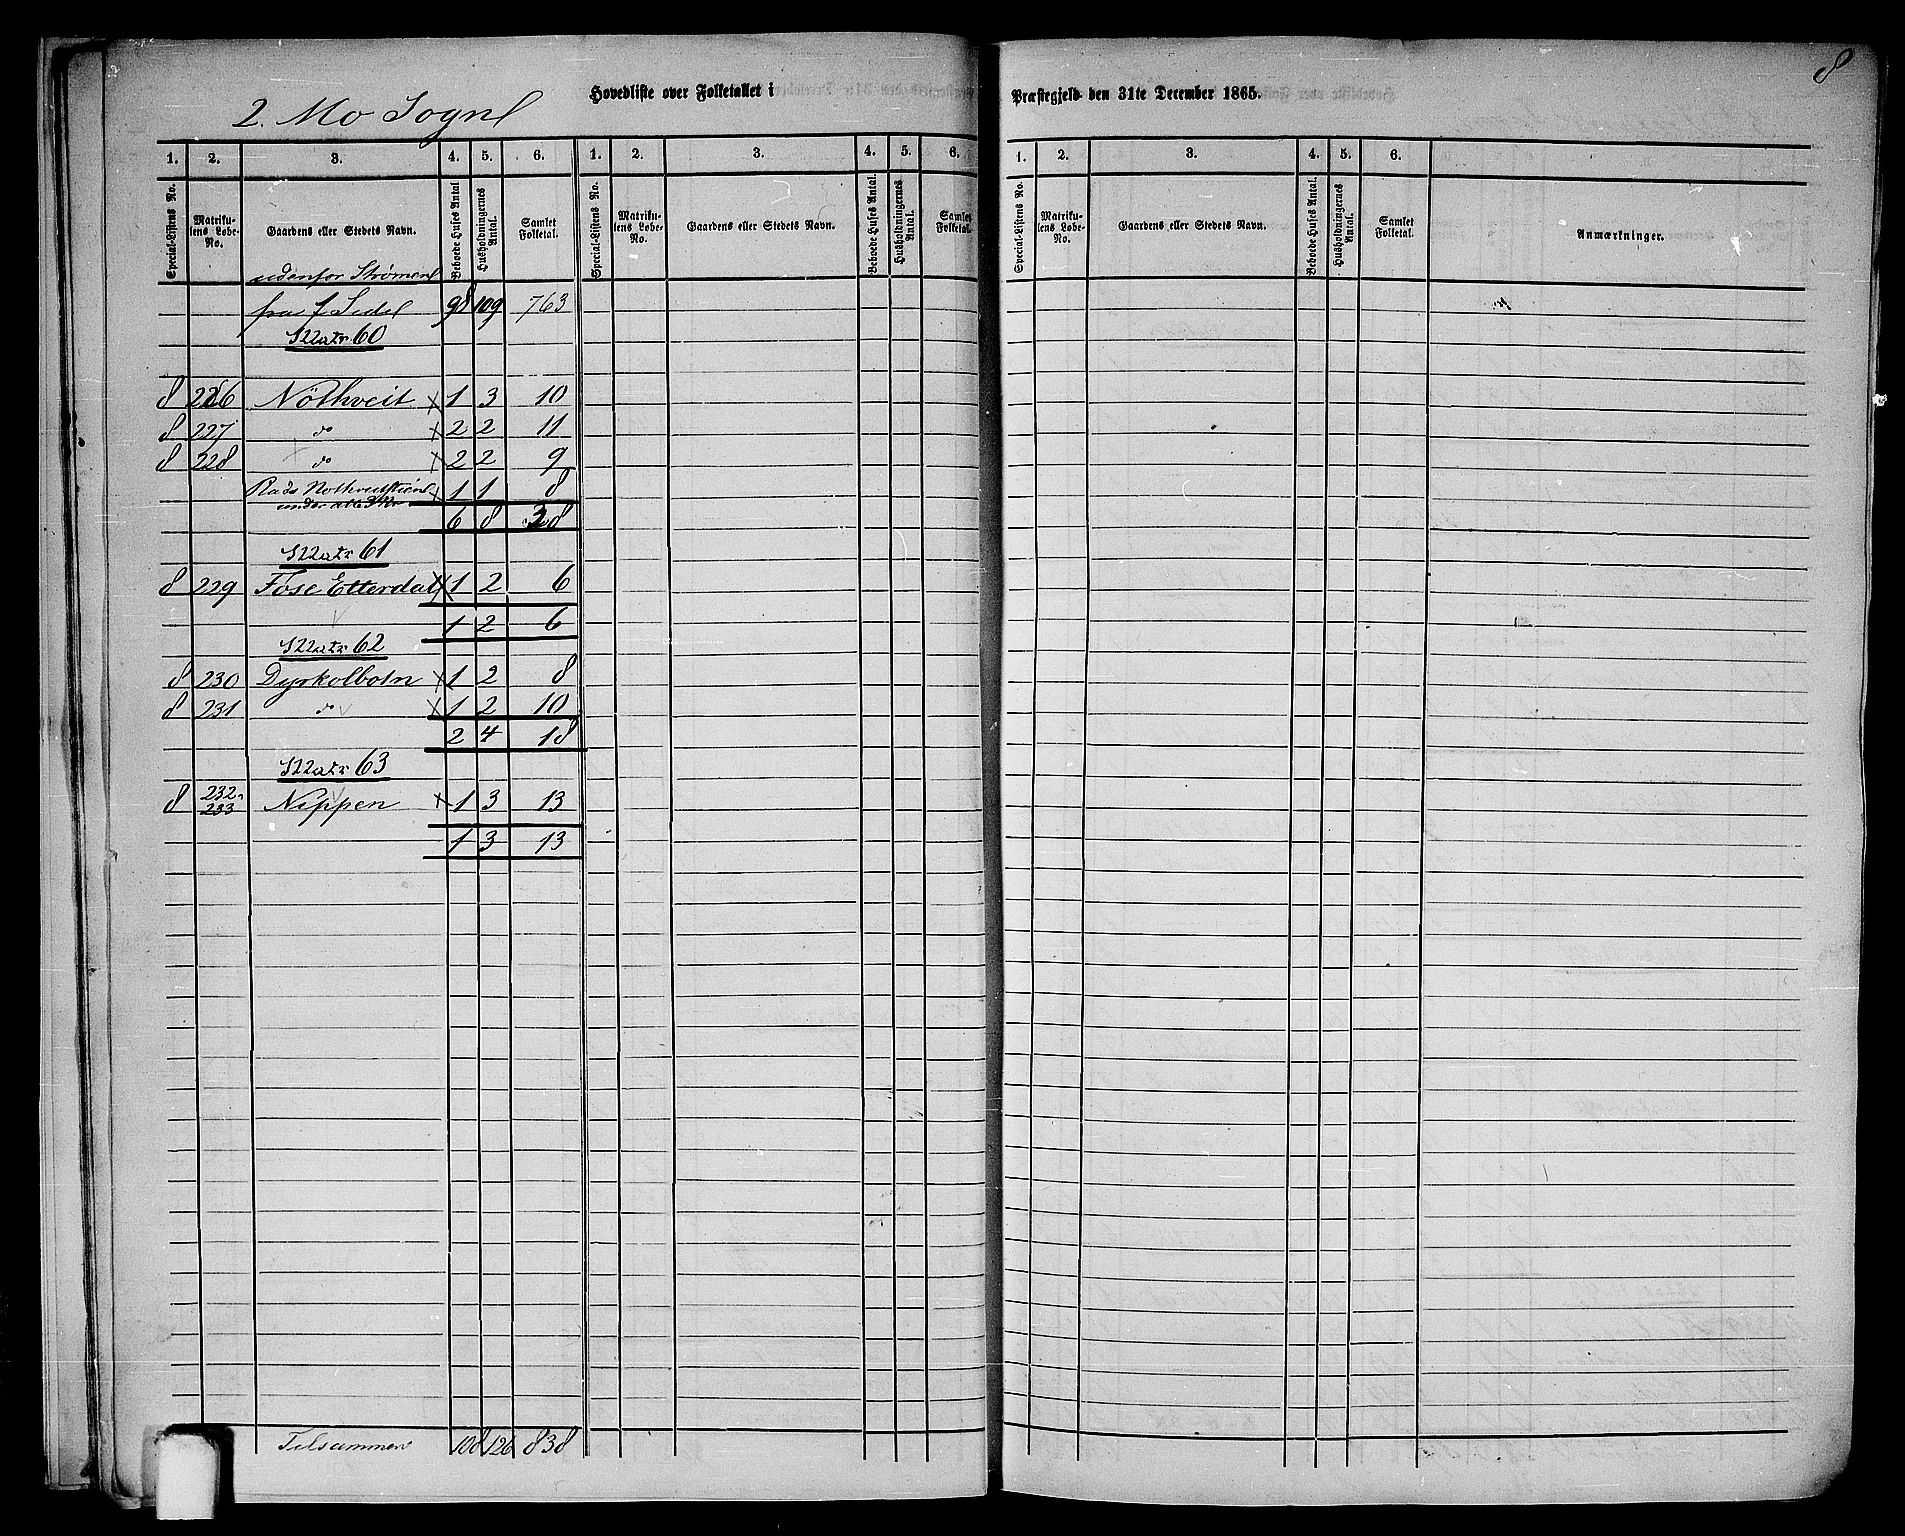 8
2. Mo Sogn
Hovedliste over Folketallet i Præstegjeld den 31te December 1865.
1. 2. 3. 4. 5. 6. 1. 2. 3. 4. 5. 6. 1. 2. 3. 4. 5. 6.
Special-Listens No. Matrikulens Løbe-No. Gaardens eller Stedets Navn. Beboede Huses Antal Husholdningernes Antal. Samlet Folketal. Special-Listens No. Matrikulens Løbe-No. Gaardens eller Stedets Navn. Beboede Huses Antal. Husholdningernes Antal. Samlet Folketal. Special-Listens No. Matrikulens Løbe-No. Gaardens eller Stedets Navn. Beboede Huses Antal. Husholdningernes Antal. Samlet Folketal. Anmærkninger.
udenfor Strømen
fra f Side 98 109 763
Matr 60
8 226 Nöthveit x 1 3 10
8 227 do x 2 2 11
8 228 do x 2 2 9
Plads x 1 1 8
under alle 3 Nr
6 8 38
Matr 61
8 229 Fose Etterdal x 1 2 6
1 2 6
Matr 62
8 230 Dyrkolbotn x 1 2 8
8 231 do x 1 2 10
2 4 18
Matr 63
8 232 233 Nippen x 1 3 13
1 3 13
Tilsammen 108 126 838